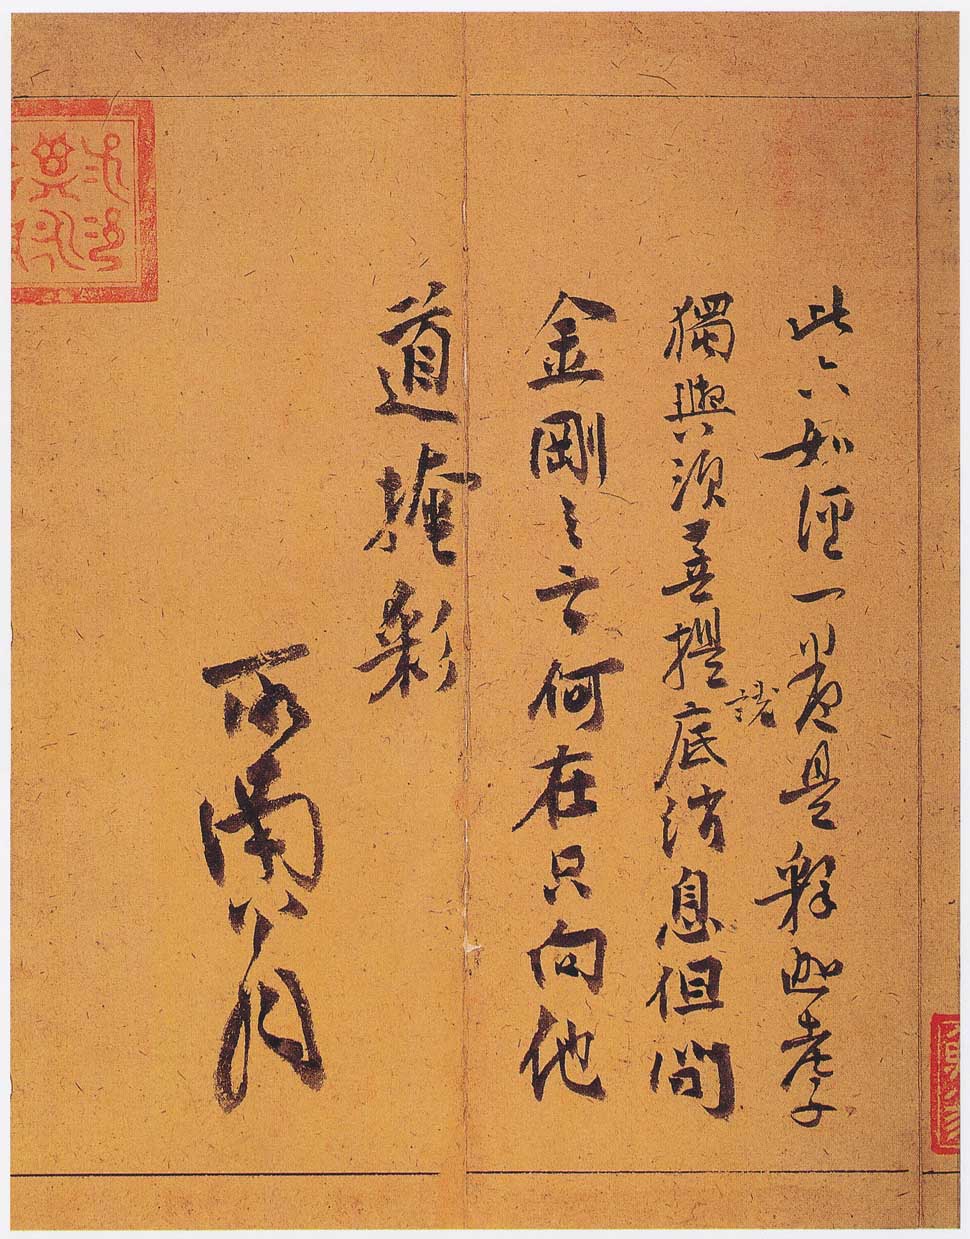 此六如經一卷是釋迦老子
獨與須菩提說底消息但問
金剛之言何在只向他
道掩彩